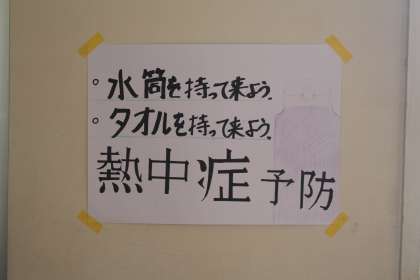 。水筒を持って来よう。
。タオルを持って来よう。
熱中症予防